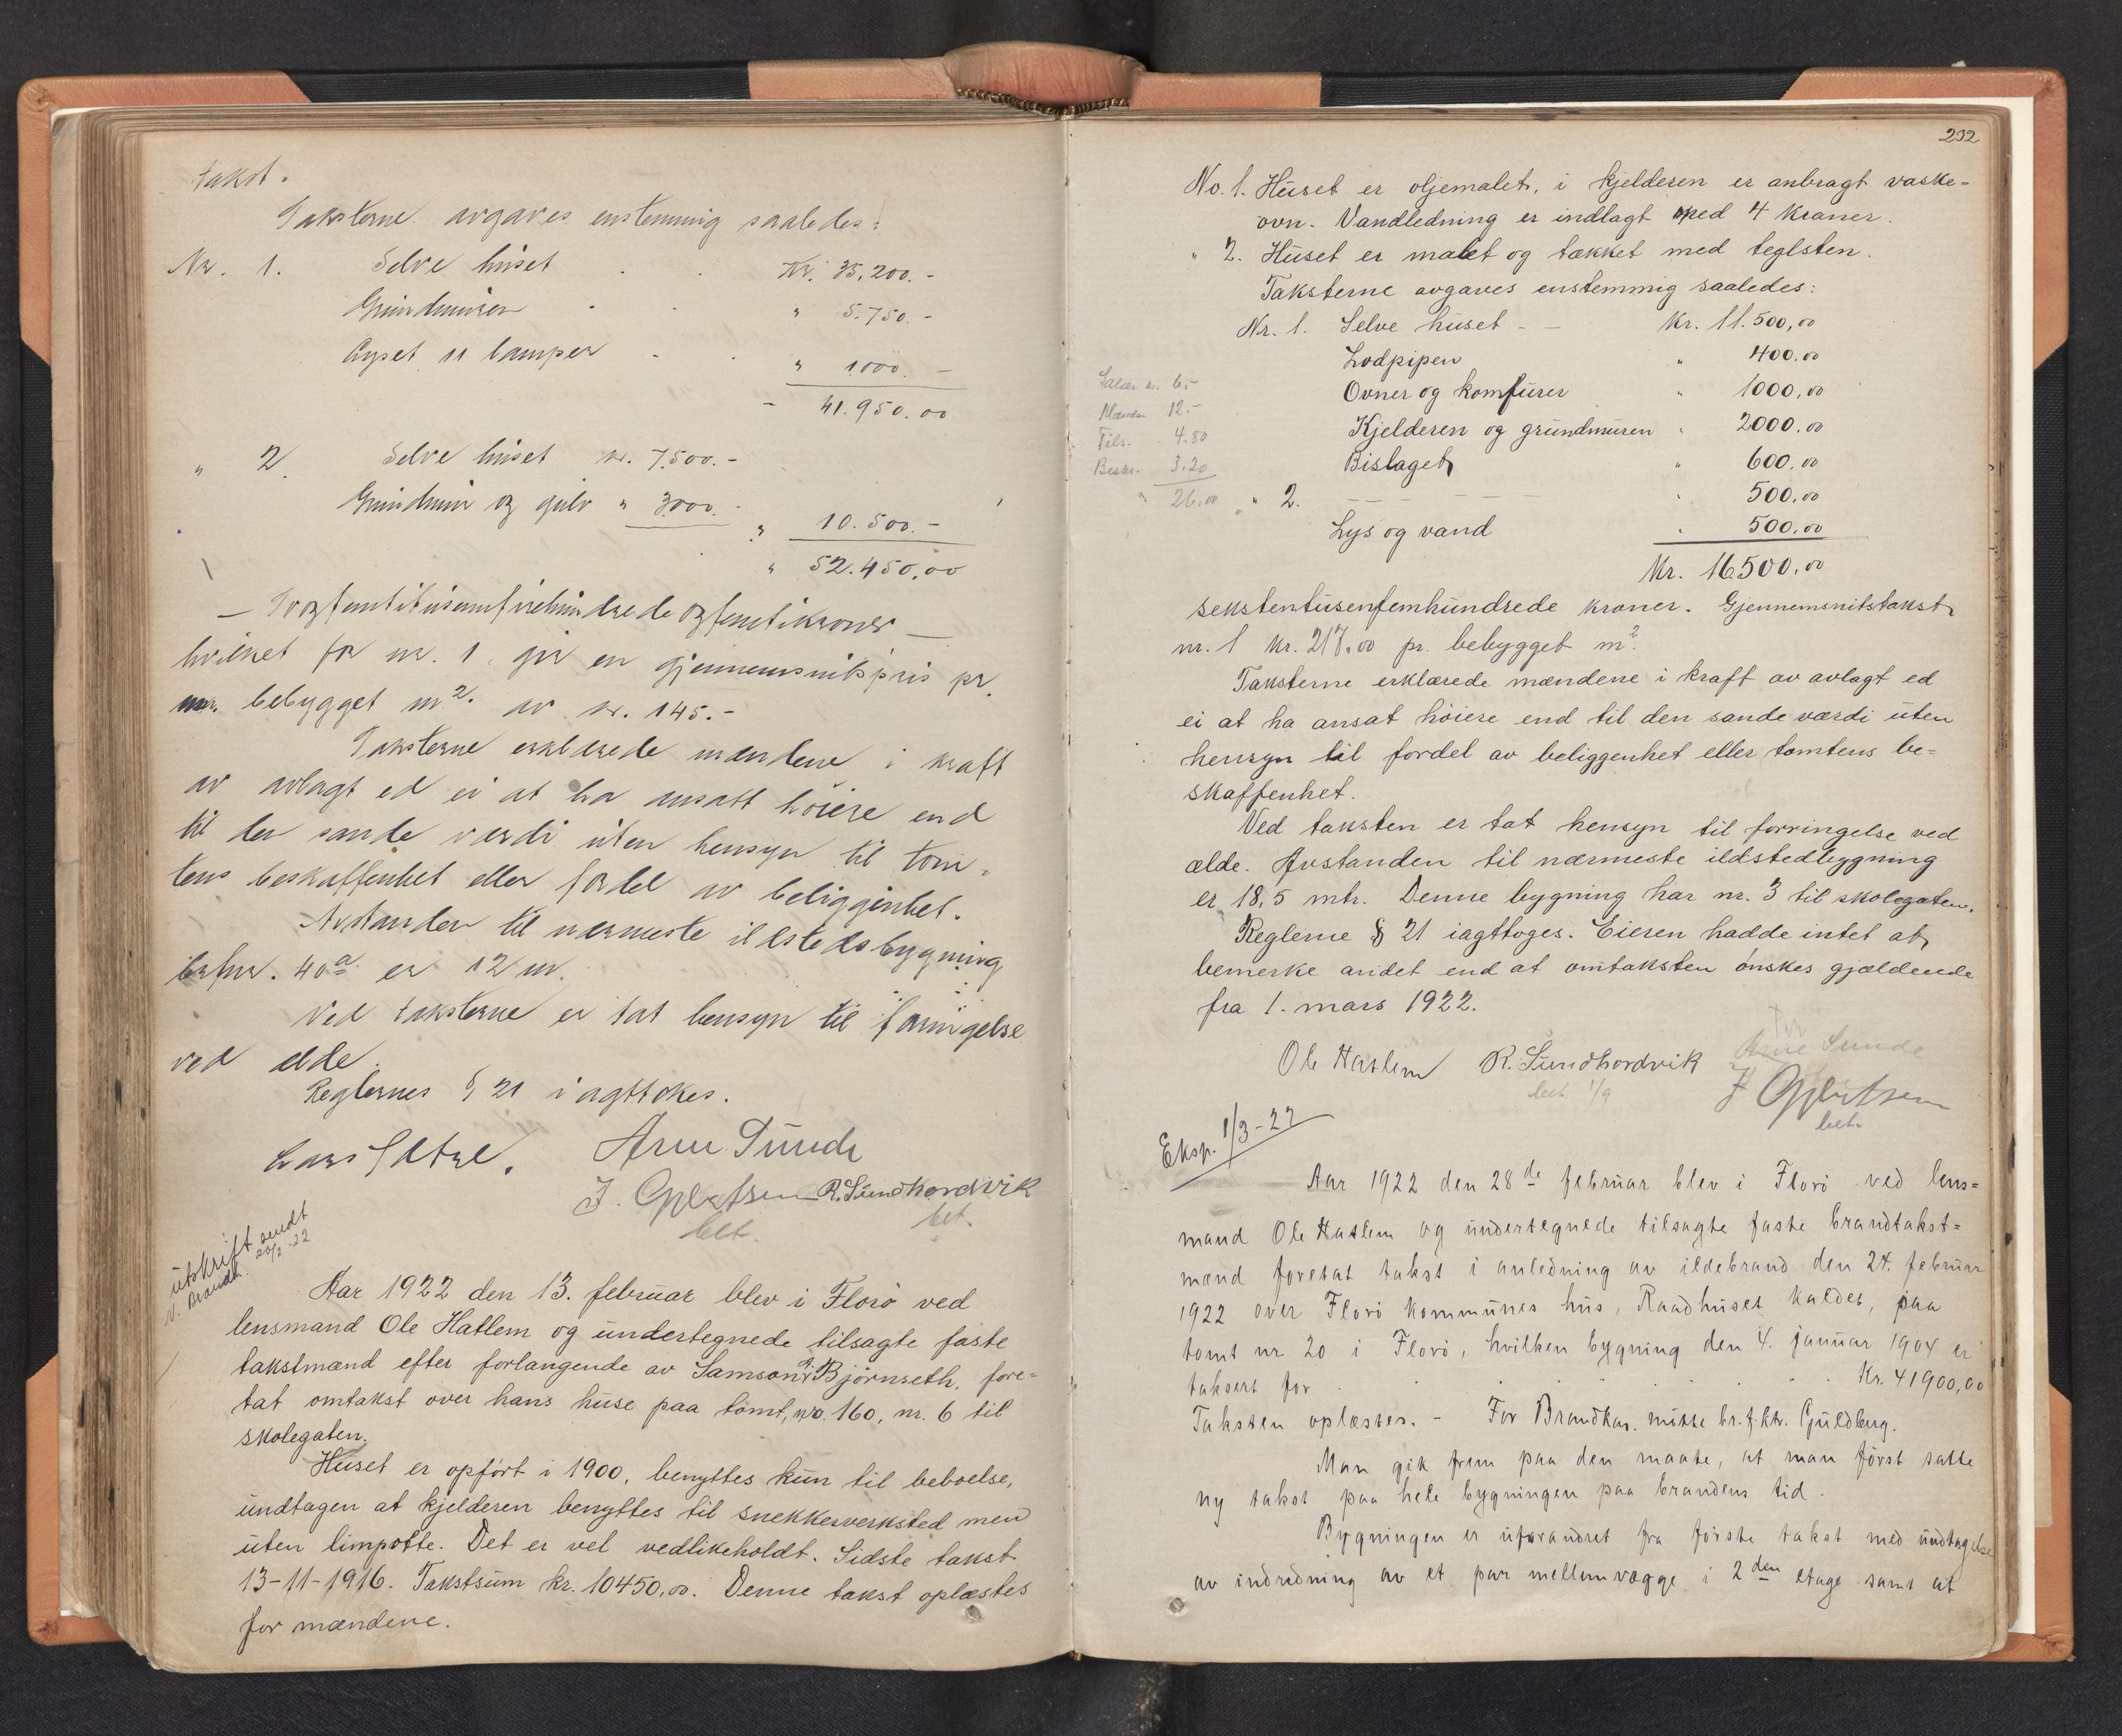 takst.
Taksterne avgaves enstemmig saaledes:
Nr. 1. Selve huset . . Kr. 35,200.-
Grundmuren . " 5.750.-
Lyset 11 lamper . . " 1000.-
- 41.950.00
" 2. Selve huset kr. 7.500.-
Grundmur og gulv " 3.000.-
" 10.500.-
" 52.450,00
- Toogfemtitusenfirehundredeogfemtikroner -
hvilket for nr. 1 gir en gjennemsnitspris pr.
bebygget m². av kr. 145.-
Taksterne erklærede mændene i kraft
av avlagt ed ei at ha ansatt höiere end
til den sande værdi uten hensyn til tom-
tens beskaffenhet eller fordel av beliggenhet.
Avstanden til nærmeste ildstedsbygning
40a er 12 m.
Ved taksterne er tat hensyn til forringelse
ved elde.
Reglernes § 21 iagttokes.
Arne Sunde
R. Sundhordvik
bet. bet.
utskrift sendt
N. Brandk. 20/2-22
Aar 1922 den 13. februar blev i Florö ved
lensmand Ole Hatlem og undertegnede tilsagte faste
takstmænd efter forlangende av Samson Bjørnseth, fore-
tat omtakst over hans huse paa tomt, no. 160, nr. 6 til
skolegaten.
Huset er opført i 1900, benyttes kun til beboelse,
undtagen at kjelderen benyttes til snekkerverksted men
uten limpotte. Det er vel vedlikeholdt. Sidste takst
13-11-1916. Takstsum kr. 10450,00. Denne takst oplæstes
for mændene.
232
No. 1. Huset er oljemalet, i kjelderen er anbragt vaske-
ovn. Vandledning er indlagt med 4 kraner.
" 2. Huset er malet og tækket med teglsten.
Taksterne avgaves enstemmig saaledes:
Nr. 1. Selve huset - - Kr. 11.500,00
Lodpipen " 400.00
Ovner og komfurer " 1000,00
Kjelderen og grundmuren " 2000.00
Bislaget " 600,00
" 2. - - - - " 500,00
Lys og vand " 500,00
Kr. 16500,00
Salær kr. 6,-
Mænden 12.-
Tils. 4.80
Beskr. 3.20
" 26.00
sekstentusenfemhundrede kroner. Gjennemsnitstakst
nr. 1 kr. 217.00 pr. bebygget m².
Taksterne erklærede mændene i kraft av avlagt ed
ei at ha ansat höiere end til den sande værdi uten
hensyn til fordel av beliggenhet eller tomtens be-
skaffenhet.
Ved taksten er tat hensyn til forringelse ved
ælde. Avstanden til nærmeste ildstedbygning
er 18,5 mtr. Denne bygning har nr. 3 til skolegaten.
Reglerne § 21 iagttoges. Eieren hadde intet at
bemerke andet end at omtaksten ønskes gjældende
fra 1. mars 1922.
Ole Hatlem R. Sundhordvik Arne Sunde
bet 1/9
bet.
Eksp. 1/3-22
Aar 1922 den 28de februar blev i Florö ved lens-
mand Ole Hatlem og undertegnede tilsagte faste brandtakst-
mænd foretat takst i anledning av ildebrand den 24. februar
1922 over Florö kommunes hus, Raadhuset kaldet, paa
tomt nr 20 i Florö, hvilken bygning den 4. januar 1904 er
taksert for . . . . . Kr. 41900,00
Taksten oplæstes. - For Brandkas. mötte br.f.ktr. Guldberg.
Man gik frem paa den maate, at man först satte
ny takst paa hele bygningen paa brandens tid.
Bygningen er uforandret fra förste takst med undtagelse
av indredning av et par mellemvægge i 2den etage samt at